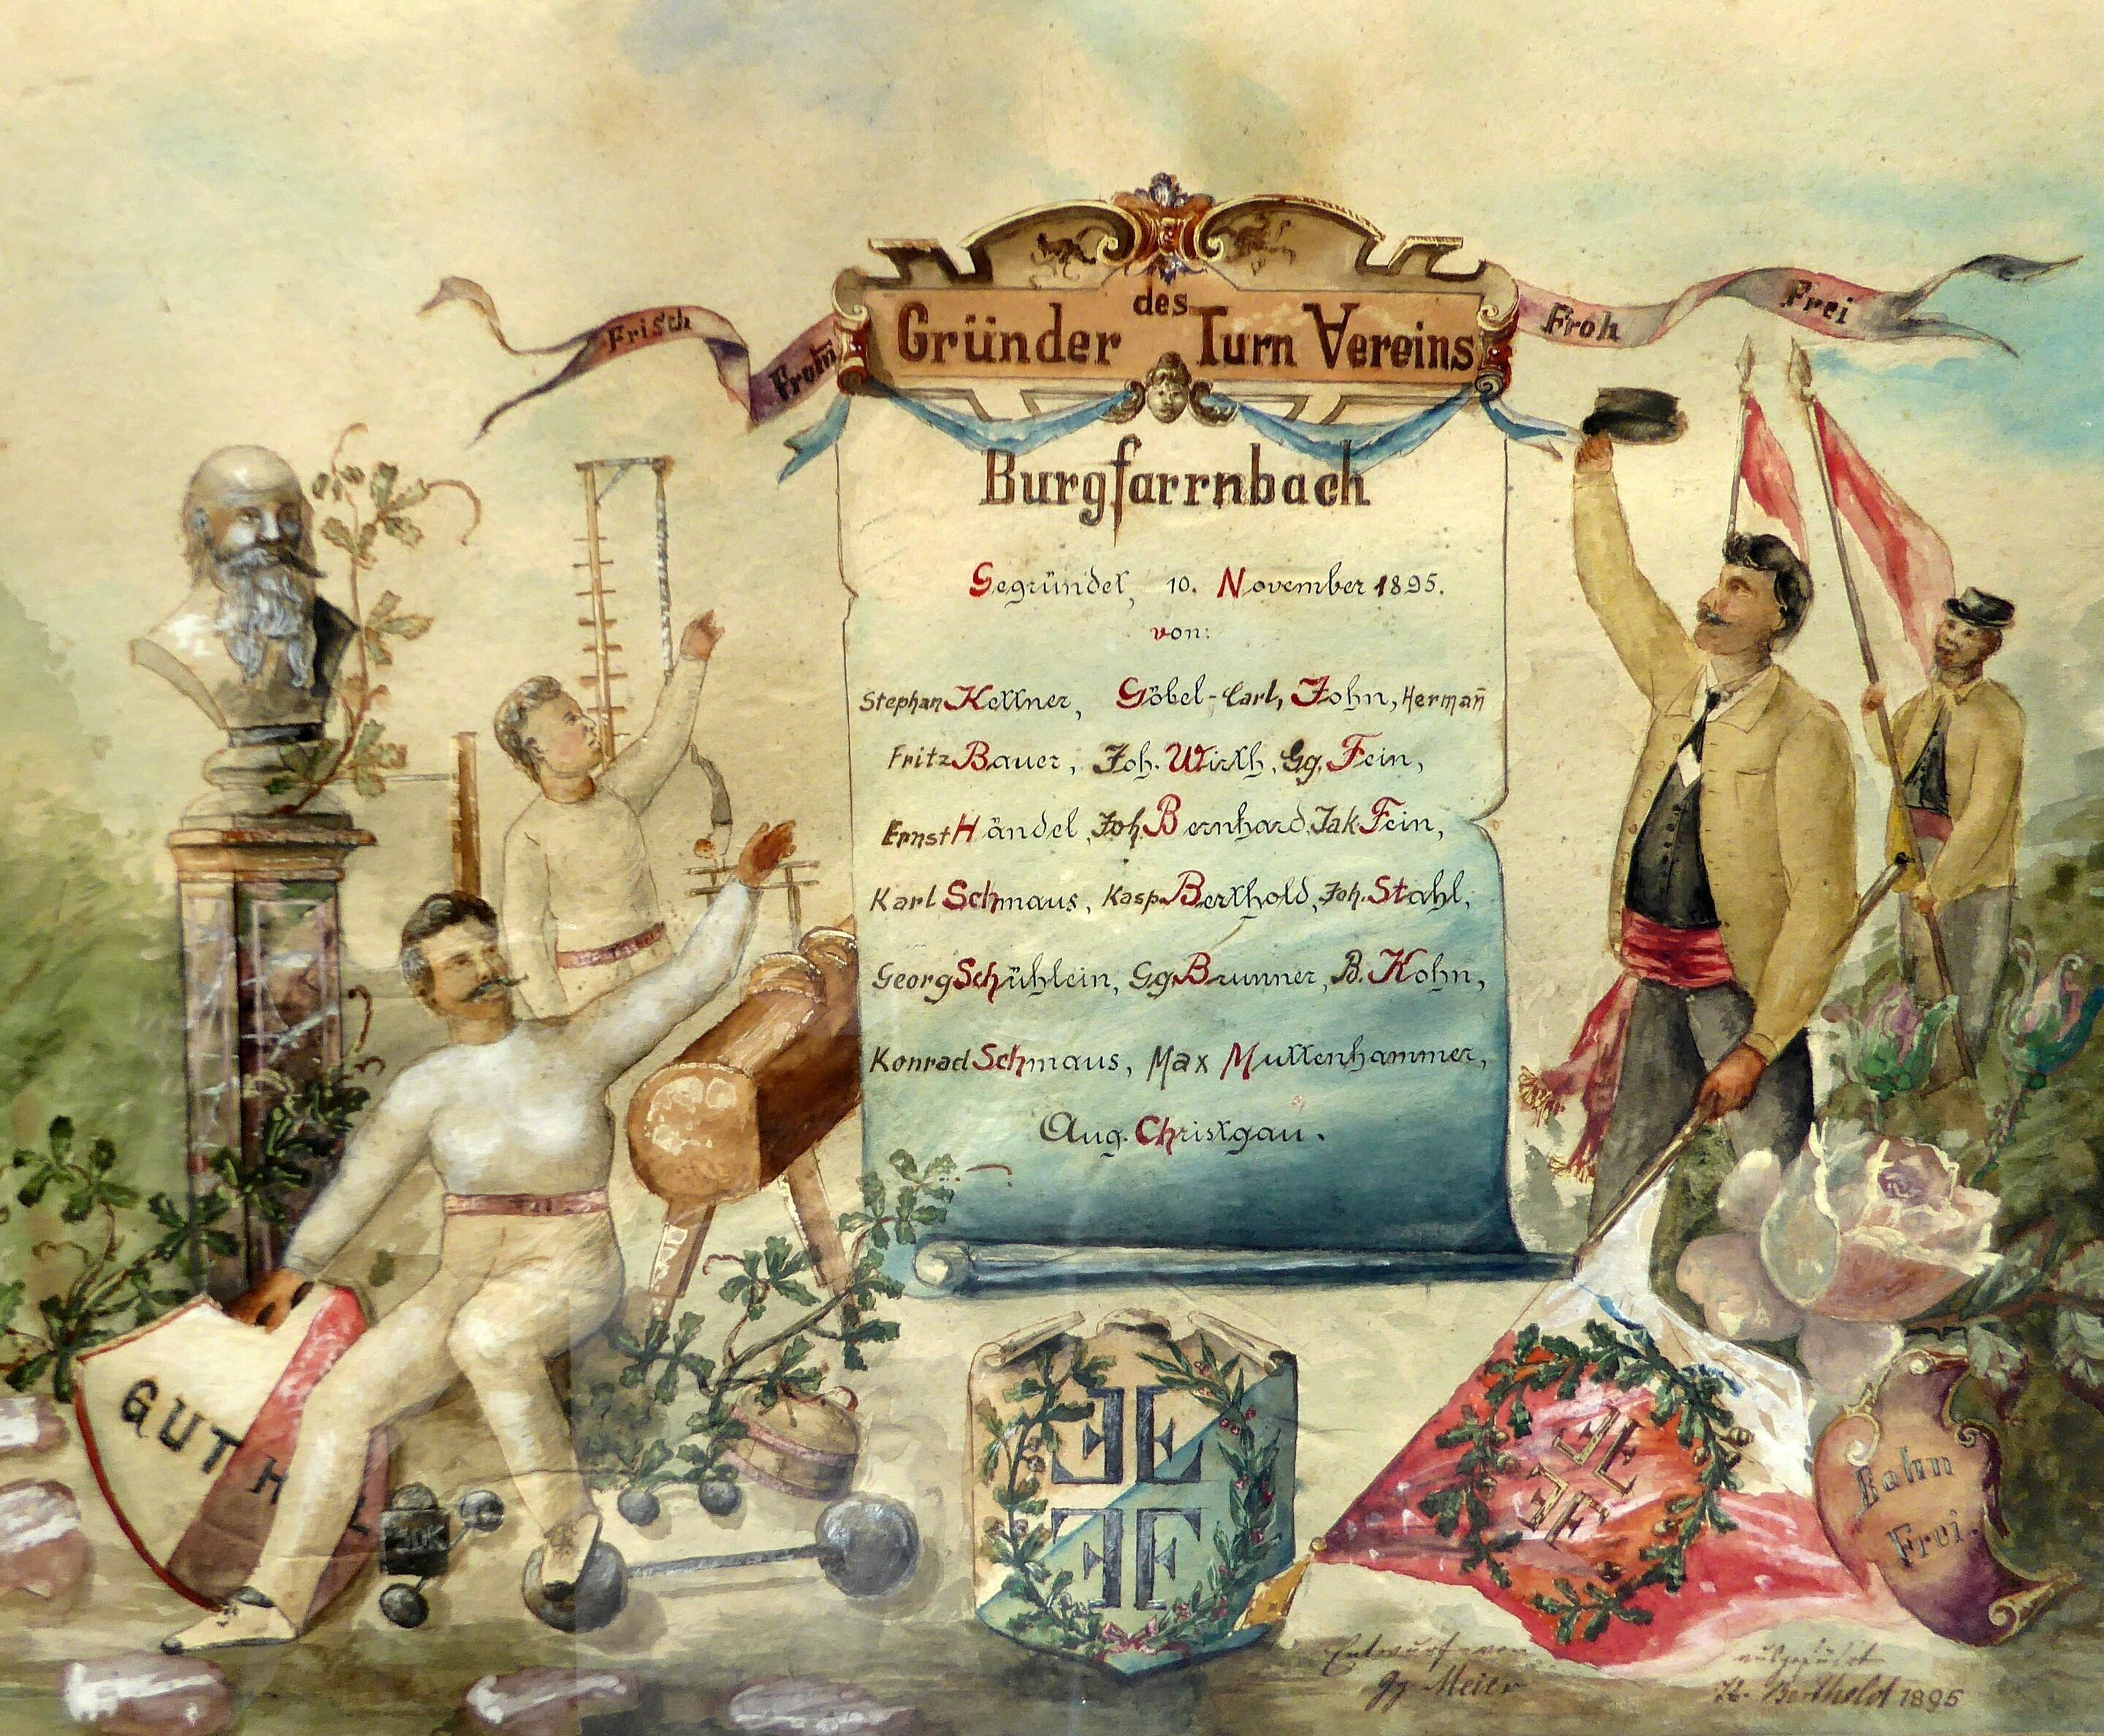 Frisch
Fromm
des
Gründer Turn Vereins
Froh
Frei
Burgfarrnbach
Gegründet, 10. November 1895.
von:
Stephan Kellner, Göbel-Carl, John, Hermañ
Fritz Bauer, Joh. Wirth, Gg. Fein,
Ernst Händel, Joh. Bernhard, Jak. Fein,
Karl Schmaus, Kasp. Berthold, Joh. Stahl,
Georg Schühlein, Gg. Brunner, B. Kohn,
Konrad Schmaus, Max Muttenhammer,
Aug. Christgau.
GUT H
50K
FFFF
FFFF
Bahn
Frei.
Entwurf von
Gg. Meier
ausgeführt
K. Berthold 1895